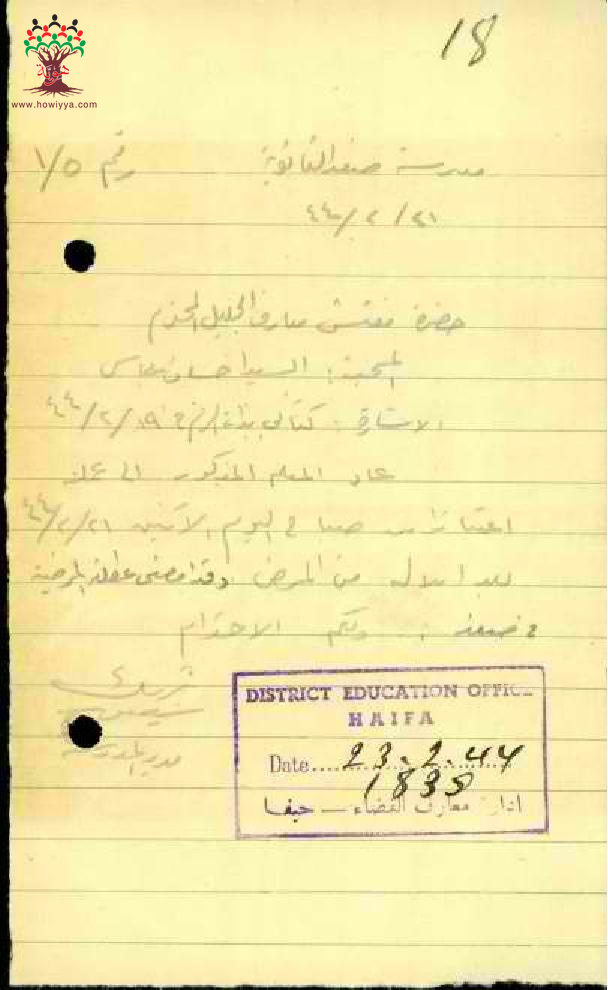 18
www.howiyya.com
مدرسة صفد الثانوية رقم ١/٥
٢١/٢/٤٤
حضرة مفتش معارف الجليل المحترم
السيد احسان عباس
الاشارة: كتابي بتاريخ ١٩/٢/٤٤
عاد المعلم المذكور الى عمله
اعتبارا من صباح اليوم الاثنين ٢١/٢/٤٤
بعد ابلاله من المرض وقد امضى عطلته المرضية
ولكم الاحترام
مدير المدرسة
DISTRICT EDUCATION OFFICE
HAIFA
Date 23.2.44
1838
ادارة معارف القضاء – حيفا